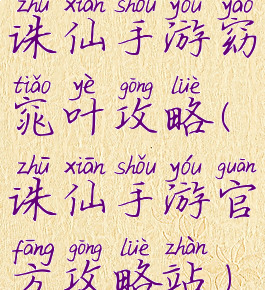 zhū xiān shǒu yóu yǎo
诛仙手游窈
tiǎo yè gōng lüè
窕叶攻略(
zhū xiān shǒu yóu guān
诛仙手游官
fāng gōng lüè zhàn
方攻略站)